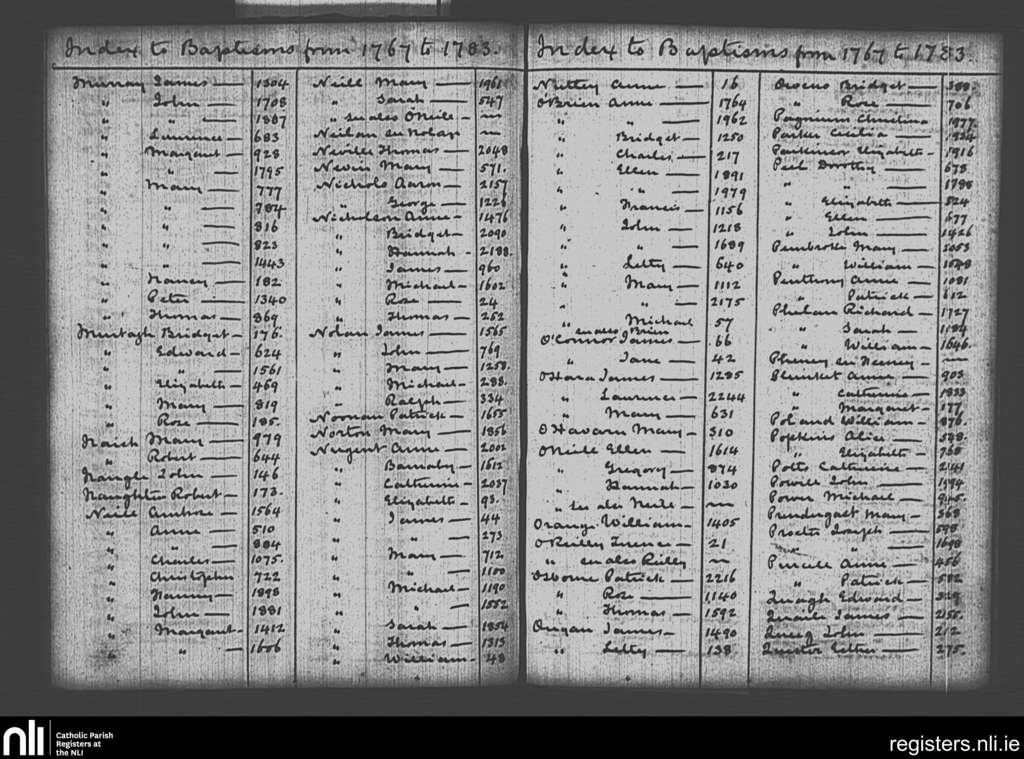 Index to Baptisms from 1767 to 1783.
Murray James — 1304
" John — 1708
" " — 1887
" Laurence — 683
" Margaret — 928
" " — 1795
" Mary — 777
" " — 784
" " — 816
" " — 823
" " — 1443
" Nancy — 182
" Peter — 1340
" Thomas — 869
Murtagh Bridget — 376.
" Edward — 624
" " — 1561
" Elizabeth — 469
" Mary — 819
" Rose — 185.
Naish Mary — 979
" Robert — 644
Nangle John — 146
Naughten Robert — 173.
Neill Ambrose — 1564
" Anne — 510
" " — 884
" Charles — 1075.
" Christopher 722
" Nancy — 1898
" John — 1881
" Margaret — 1412
" " — 1606
Neill Mary — 1961
" Sarah — 547
" see also O'Neile — —
Neilan see Nolan —
Neville Thomas — 2048
Nevin Mary — 571.
Nichols Aaron — 2157
" George — 1226
Nicholson Anne — 1476
" Bridget — 2090
" Hannah — 2188.
" James — 960
" Michael — 1602
" Rose — 24
" Thomas — 252
Nolan James — 1565
" John — 769
" Mary — 1258.
" Michael — 288.
" Ralph — 334
Noonan Patrick — 1655
Norton Mary — 1856
Nugent Anne — 2002
" Barnaby — 1612
" Catherine — 2037
" Elizabeth — 93.
" James — 44
" " — 273
" Mary — 712
" " — 1100
" Michael — 1190
" " — 1552
" Sarah — 1854
" Thomas — 1313
" William — 48
Index to Baptisms from 1767 to 1783.
Nuttey Anne — 16
O'Brien Anne — 1764
" " — 1962
" Bridget — 1250
" Charles — 217
" Ellen — 1891
" " — 1979
" Francis — 1156
" John — 1218
" " — 1689
" Letty — 640
" Mary — 1112
" " — 2175
" Michael 57
" see also Brien
O'Connor James — 66
" Jane — 42
O'Hara James — 1285
" Laurence — 2244
" Mary — 631
O'Havarn Mary — 310
O'Neill Ellen — 1614
" Gregory — 874
" Hannah — 1030
" see also Neile — —
Orange William — 1405
O'Reilly Terence — 21
" see also Reilly —
Osborne Patrick — 2216
" Rose — 1140
" Thomas — 1592
Ougan James — 1490
" Letty — 138
Owens Bridget — 300.
" Rose — 706
Pagnum Christina 1977
Parker Cecilia — 1934
Parkinson Elizabeth — 1916
Peel Dorothy — 673
" " — 1788
" Elizabeth — 524
" Ellen — 677
" John — 1426
Pembroke Mary — 2053
" William — 1548
Penthony Anne — 1081
" Patrick — 612
Phelan Richard — 1727
" Sarah — 1184
" William — 1646.
Pheney see Feeney — —
Plunket Anne — 903
" Catherine — 1833
" Margaret — 177
Poland William — 876.
Popkins Alice — 538.
" Elizabeth — 768
Potts Catherine — 2141
Powell John — 1994
Power Michael — 945.
Prendergast Mary — 368
Proctor Joseph — 598
" " — 1698
Purcell Anne — 456
" Patrick — 582
Quagh Edward — 329
Quaile James — 255.
Queeg John — 212
Quester Esther — 275.
nli
Catholic Parish
Registers at
the NLI
registers.nli.ie